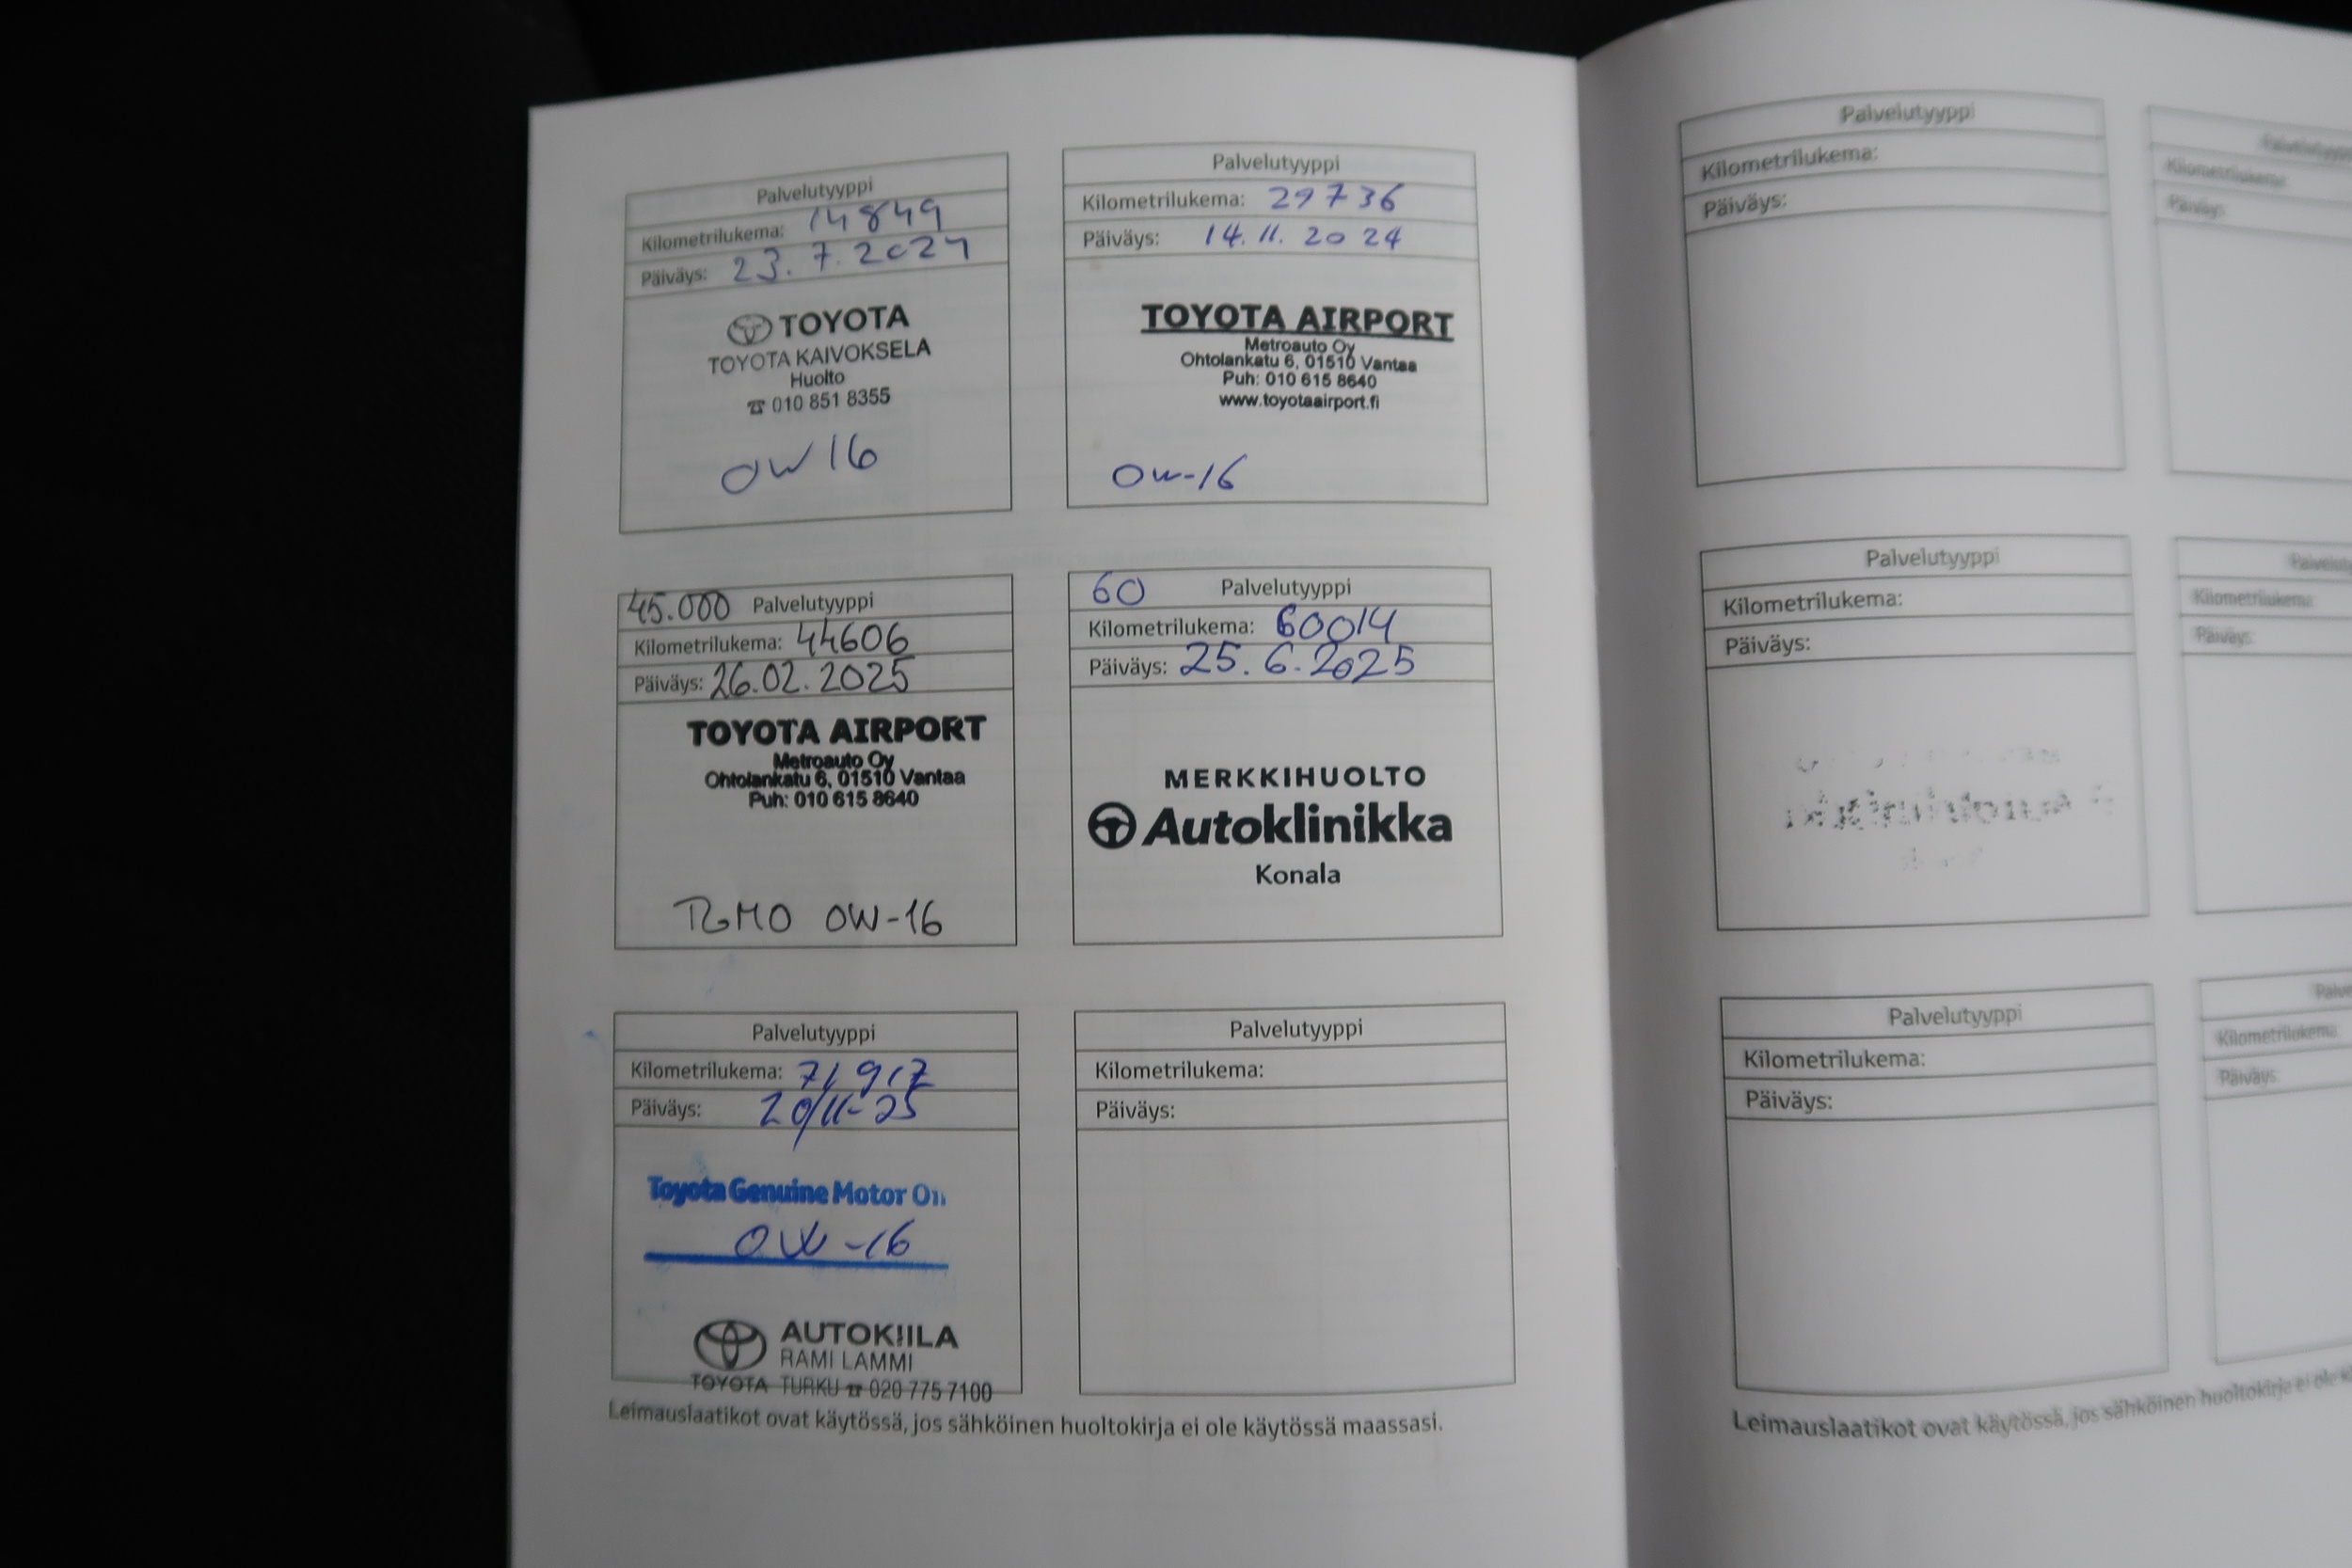 Palvelutyyppi
Kilometrilukema: 14849
Päiväys: 23.7.2024
TOYOTA
TOYOTA KAIVOKSELA
Huolto
☎ 010 851 8355
OW16
Palvelutyyppi
Kilometrilukema: 29736
Päiväys: 14.11.2024
TOYOTA AIRPORT
Metroauto Oy
Ohtolankatu 6, 01510 Vantaa
Puh: 010 615 8640
www.toyotaairport.fi
OW-16
45.000 Palvelutyyppi
Kilometrilukema: 44606
Päiväys: 26.02.2025
TOYOTA AIRPORT
Metroauto Oy
Ohtolankatu 6, 01510 Vantaa
Puh: 010 615 8640
TGMO OW-16
60 Palvelutyyppi
Kilometrilukema: 60014
Päiväys: 25.6.2025
MERKKIHUOLTO
Autoklinikka
Konala
Palvelutyyppi
Kilometrilukema: 71917
Päiväys: 20/11-25
Toyota Genuine Motor Oil
OW-16
AUTOKIILA
RAMI LAMMI
TOYOTA TURKU ☎ 020 775 7100
Palvelutyyppi
Kilometrilukema:
Päiväys:
Leimauslaatikot ovat käytössä, jos sähköinen huoltokirja ei ole käytössä maassasi.
Palvelutyyppi
Kilometrilukema:
Päiväys:
Palvelutyyppi
Kilometrilukema:
Päiväys:
Palvelutyyppi
Kilometrilukema:
Päiväys:
Palvelutyyppi
Kilometrilukema:
Päiväys:
Palvelutyyppi
Kilometrilukema:
Päiväys:
Kilometrilukema:
Päiväys:
Leimauslaatikot ovat käytössä, jos sähköinen huoltokirja ei ole